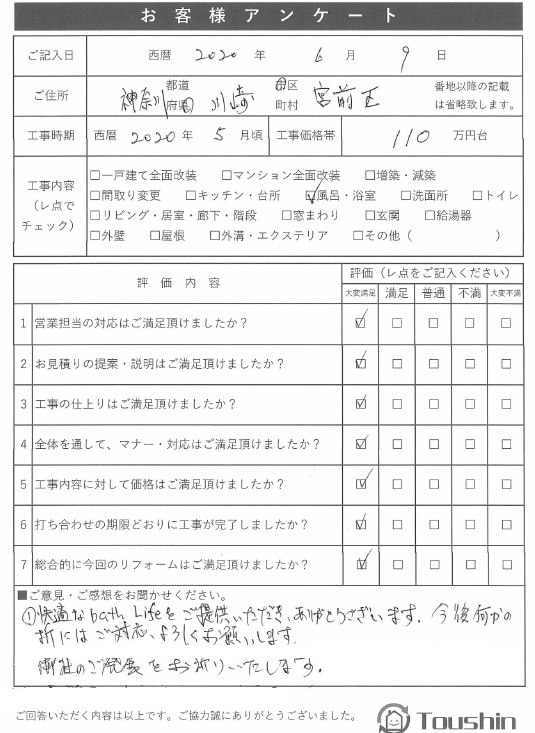 お客様アンケート
ご記入日 西暦 2020 年 6 月 9 日
ご住所 神奈川 都道府県 川崎 市区町村 宮前区 番地以降の記載は省略致します。
工事時期 西暦 2020 年 5 月頃 工事価格帯 110 万円台
工事内容（レ点でチェック）
□一戸建て全面改装 □マンション全面改装 □増築・減築
□間取り変更 □キッチン・台所 ☑風呂・浴室 □洗面所 □トイレ
□リビング・居室・廊下・階段 □窓まわり □玄関 □給湯器
□外壁 □屋根 □外溝・エクステリア □その他（ ）
評価内容 評価（レ点をご記入ください）
大変満足 満足 普通 不満 大変不満
1 営業担当の対応はご満足頂けましたか？ ☑ □ □ □ □
2 お見積りの提案・説明はご満足頂けましたか？ ☑ □ □ □ □
3 工事の仕上りはご満足頂けましたか？ ☑ □ □ □ □
4 全体を通して、マナー・対応はご満足頂けましたか？ ☑ □ □ □ □
5 工事内容に対して価格はご満足頂けましたか？ ☑ □ □ □ □
6 打ち合わせの期限どおりに工事が完了しましたか？ ☑ □ □ □ □
7 総合的に今回のリフォームはご満足頂けましたか？ ☑ □ □ □ □
■ご意見・ご感想をお聞かせください。
①快適なbath Lifeをご提供いただき、ありがとうございます。今後何かの
折にはご対応、よろしくお願いします。
御社のご発展をお祈りいたします。
ご回答いただく内容は以上です。ご協力誠にありがとうございました。
Toushin